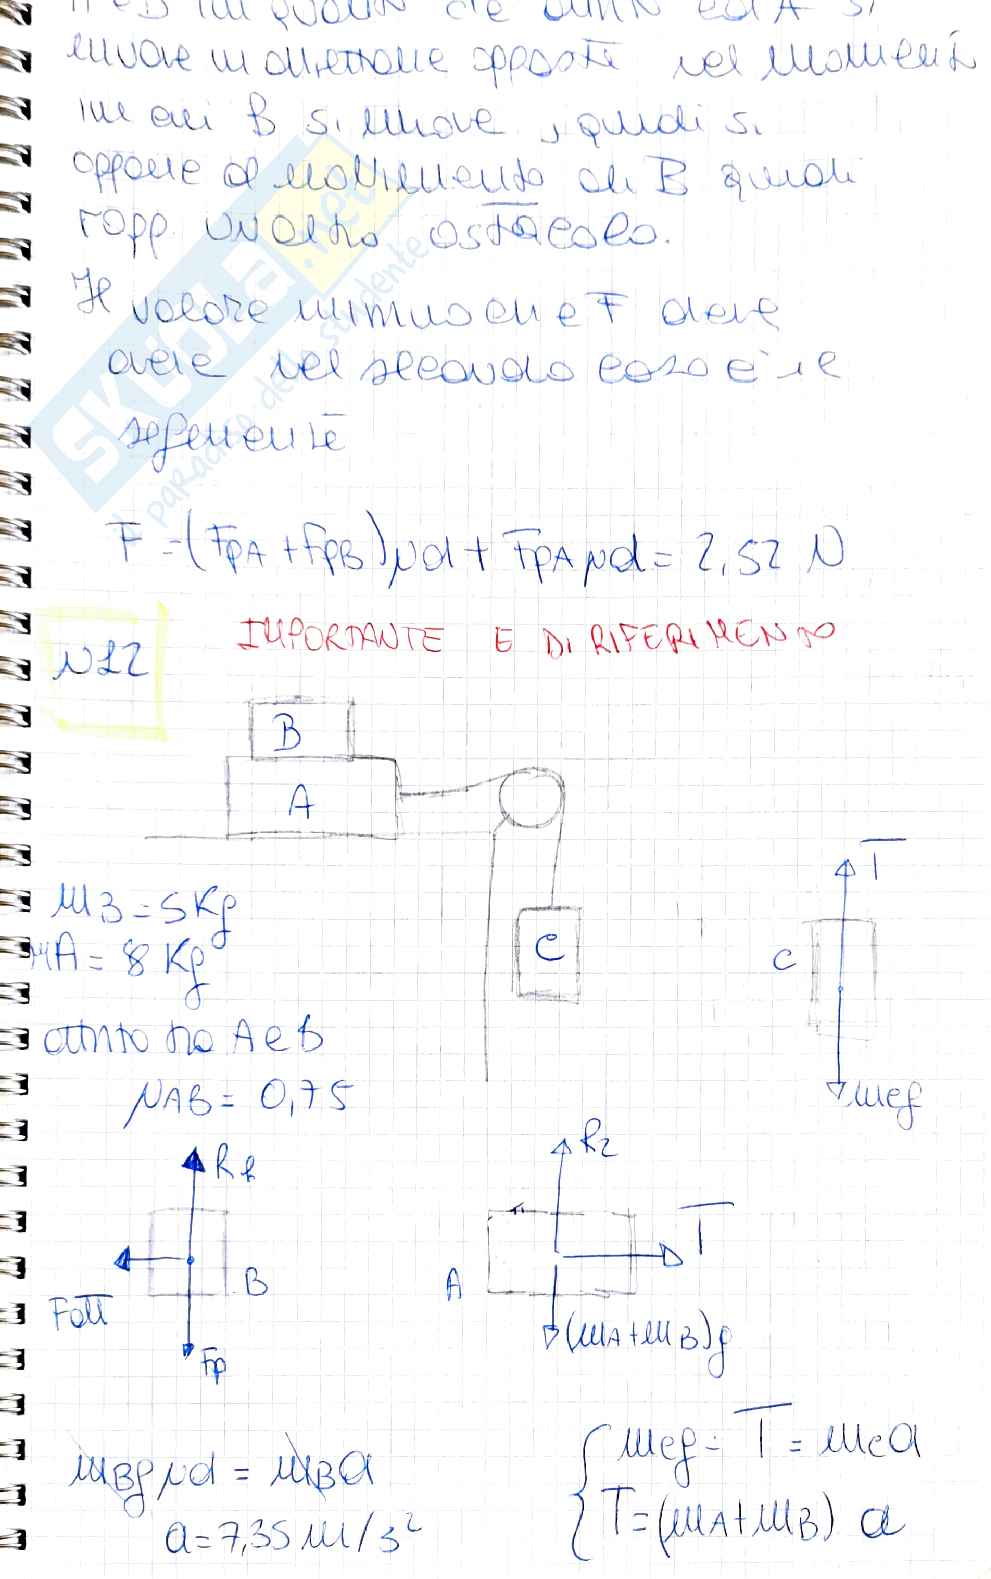 muove in direzione opposta nel momento
in cui B si muove, quindi si
oppone al movimento di B quindi
rapp. un altro ostacolo.
Il valore minimo che F deve
avere nel secondo caso è il
seguente
F = (FpA + FpB) μd + FpA μd = 2,52 N
N12
IMPORTANTE E DI RIFERIMENTO
B
A
C
mB = 5 Kg
mA = 8 Kg
attrito tra A e B
μAB = 0,75
T
C
mcg
RB
Fatt
B
Fp
R2
T
A
(mA + mB)g
mBg μd = mBa
a = 7,35 m/s²
mcg - T = mca
T = (mA + mB) a
SKUOLA.net
il paradiso dello studente